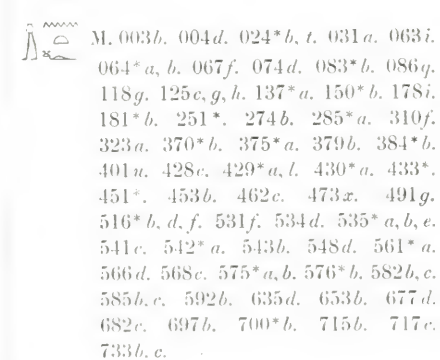 M. 003b. 004d. 024*b, t. 031a. 063i.
064*a, b. 067f. 074d. 083*b. 086q.
118g. 125c, g, h. 137*a. 150*b. 178i.
181*b. 251*. 274b. 285*a. 310f.
323a. 370*b. 375*a. 379b. 384*b.
401u. 428c. 429*a, l. 430*a. 433*.
451*. 453b. 462c. 473x. 491g.
516*b, d, f. 531f. 534d. 535*a, b, e.
541c. 542*a. 543b. 548d. 561*a.
566d. 568c. 575*a, b. 576*b. 582b, c.
585b, c. 592b. 635d. 653b. 677d.
682c. 697b. 700*b. 715b. 717c.
733b, c.